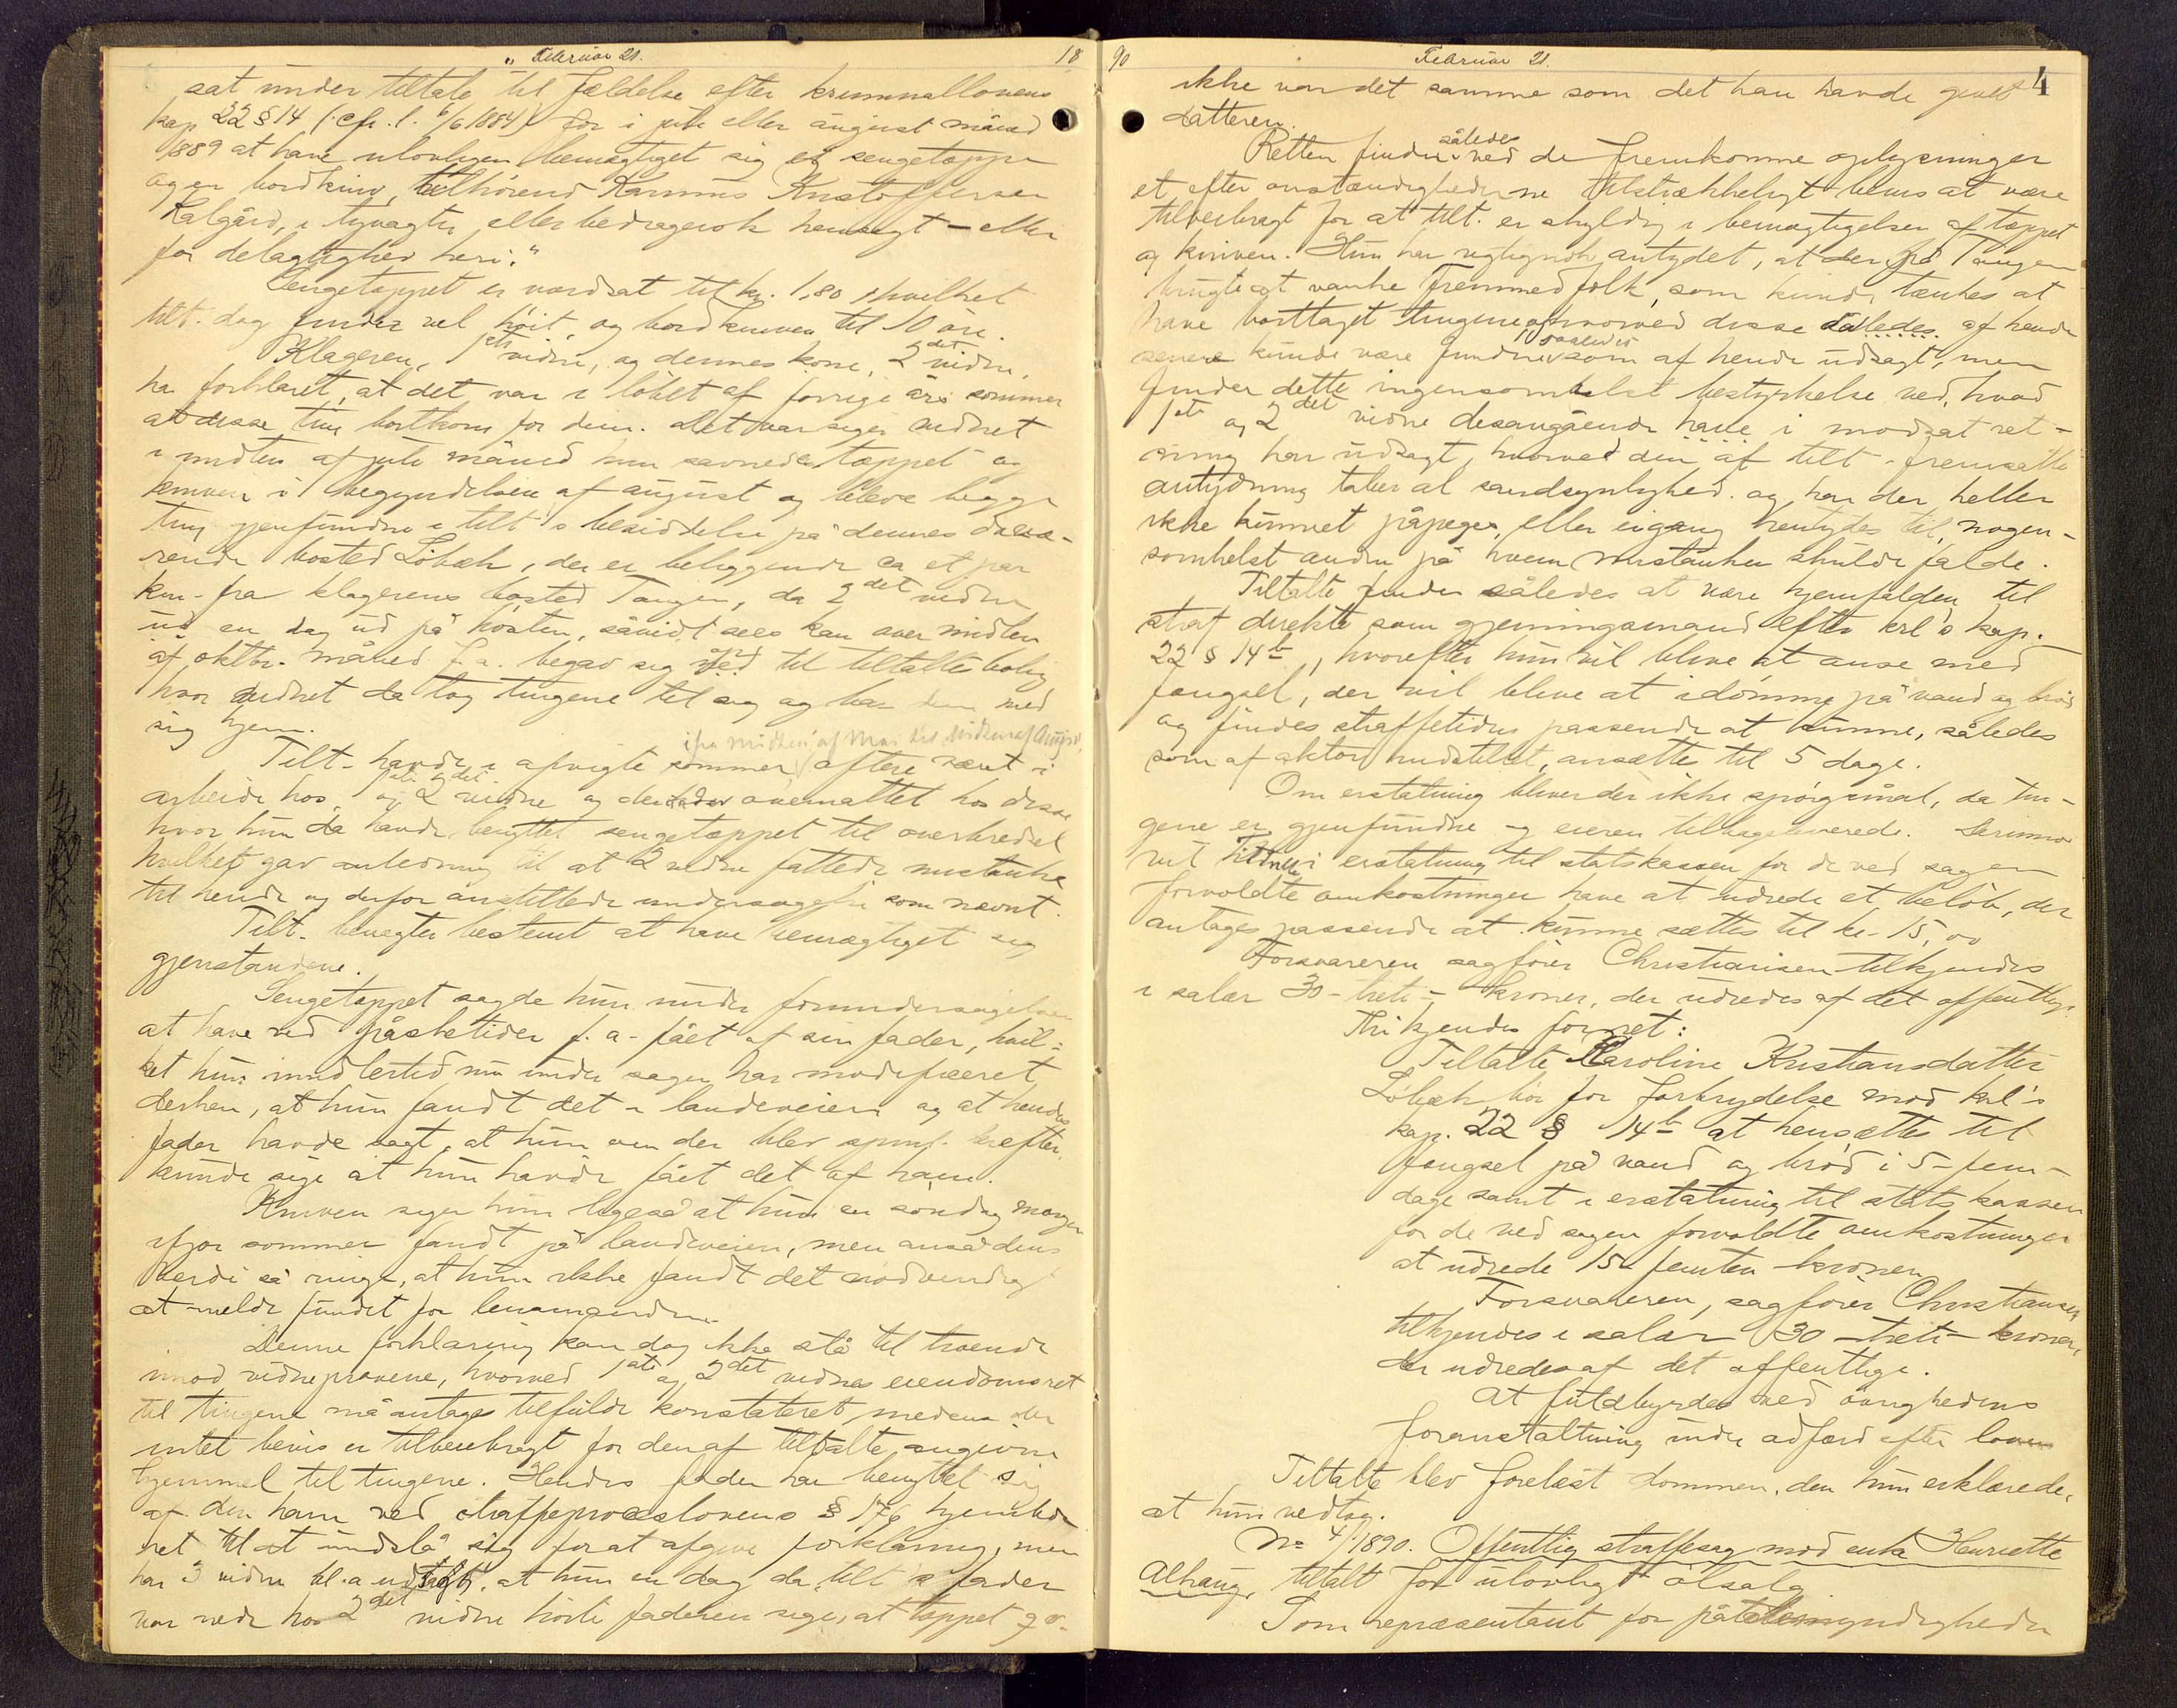 " Februar 21. 18
sat under tiltale til fældelse efter kriminallovens
kap 22 § 14 (cfr. l. 6/6 1884) for i juli eller august måned
1889 at have ulovligen bemægtiget sig et sengetæppe
og en bordkniv, tilhörende Rasmus Kristoffersen
Kalgård, i tyvagtig eller bedragersk hensigt – eller
for delagtighed heri."
Sengetæppet er værdsat til kr. 1,80 hvilket
tilt. dog finder vel höit, og bordkniven til 10 öre.
Klageren, 1ste vidne, og dennes kone, 2det vidne,
har forklaret, at det var i löbet af forrige års sommer
at disse ting bortkom for dem. Det var siger vidnet
i midten af juli måned hun savnede tæppet og
kniven i begyndelsen af august og bleve begge
ting gjenfundne i tilt's besiddelse på dennes davæ-
rende bosted Löbæk, der er beliggende ca et par
km. fra klagerens bosted Tangen, da 2det vidne
ud en dag ud på hösten, såvidt sees kan over midten
af oktbr. måned f. a. begav sig op til tiltaltes bolig
hvor vidnet da tog tingene til sig og bar dem med
sig hjem.
ifra Midten af Mai til Midten af August
Tilt. havde i afvigte sommer oftere været i
arbeide hos 1ste og 2det vidne og der overnattet hos disse
hvor hun da havde benyttet sengetæppet til overbredsel
hvilket gav anledning til at 2 vidne fattede mistanke
til hende og derfor anstillede undersøgelse som nævnt.
Tilt. benægter bestemt at have bemægtiget sig
gjenstandene.
Sengetæppet sagde hun under forundersøgelsen
at have ved påsketider f. a. fået af sin fader, hvil-
ket hun imidlertid nu under sagen har modificeret
derhen, at hun fandt det i landeveien og at hendes
fader havde sagt, at hun om der blev spurgt herefter,
kunde sige at hun havde fået det af ham.
Kniven siger hun ligeså at hun en söndag morgen
ifjor sommer fandt på landeveien, men anså dens
værdi så ringe, at hun ikke fandt det nödvendig
at melde fundet for lensmanden.
Denne forklaring kan dog ikke stå til troende
imod vidneprovene, hvorved 1ste og 2det vidnes eiendomsret
til tingene må antages tilfulde konstateret, medens der
intet bevis er tilveiebragt for den af tiltalte angivne
hjemmel til tingene. Hendes fader har benyttet sig
af den ham ved straffeproceslovens § 176 hjemlede
ret til at undslå sig for at afgive forklaring, men
har 3 vidne bl.a. udsagt, at hun en dag da tilt's fader
var nede hos 2det vidne hörte faderen sige, at tæppet
90 Februar 21. 4
ikke var det samme som det han havde givet
datteren.
Retten finder således ved de fremkomne oplysninger
et efter omstændighederne tilstrækkeligt bevis at være
tilveiebragt for at tilt. er skyldig i bemægtigelsen af tæppet
og kniven. Hun har rigtignok antydet, at der på Tangen
vanke fremmedfolk, som kunde tænkes at
have borttaget tingene hvorved disse således af hende
senere kunde være fundne saaledes som af hende udsagt, men
finder dette ingensomhelst bestyrkelse ved, hvad
1ste og 2det vidne desangående have i modsat ret-
ning har udsagt, hvorved den af tilt. fremsatte
antydning taber al sandsynlighed. og har der heller
ikke kunnet påpeges eller engang hentydes til nogen-
somhelst anden på hvem mistanken skulde falde.
Tiltalte findes således at være hjemfalden til
straf direkte som gjerningsmand efter krl's kap.
22 § 14 b, hvorefter hun vil blive at anse med
fængsel, der vil blive at idömme på vand og bröd
og findes straffetiden passende at kunne, således
som af aktor indstillet, ansættes til 5 dage.
Om erstatning bliver der ikke spörgsmål, da tin-
gene er gjenfundne og eieren tilbageleverede. Derimod
vil tiltalte i erstatning til statskassen for de ved sagen
forvoldte omkostninger have at udrede et belöb, der
antages passende at kunne sættes til kr. 15,00
Forsvareren sagförer Christiansen tilkjendes
i salær 30 – treti – kroner, der udredes af det offentlige.
Thi kjendes for ret:
Tiltalte Karoline Kristiansdatter
Löbæk bör for forbrydelse mod krl's
kap. 22 § 14 b at hensættes til
fængsel på vand og bröd i 5 – fem –
dage samt i erstatning til statskassen
for de ved sagen forvoldte omkostninger
at udrede 15 – femten – kroner.
Forsvareren, sagförer Christiansen,
tilkjendes i salær 30 – treti – kroner,
der udredes af det offentlige.
At fuldbyrdes ved övrighedens
foranstaltning under adfærd efter loven
Tiltalte blev forelæst dommen, den hun erklærede,
at hun vedtog.
No 4/1890. Offentlig straffesag mod enke Henriette
Alhaug, tiltalt for ulovligt ölsalg.
Som repræsentant for påtalemyndigheden